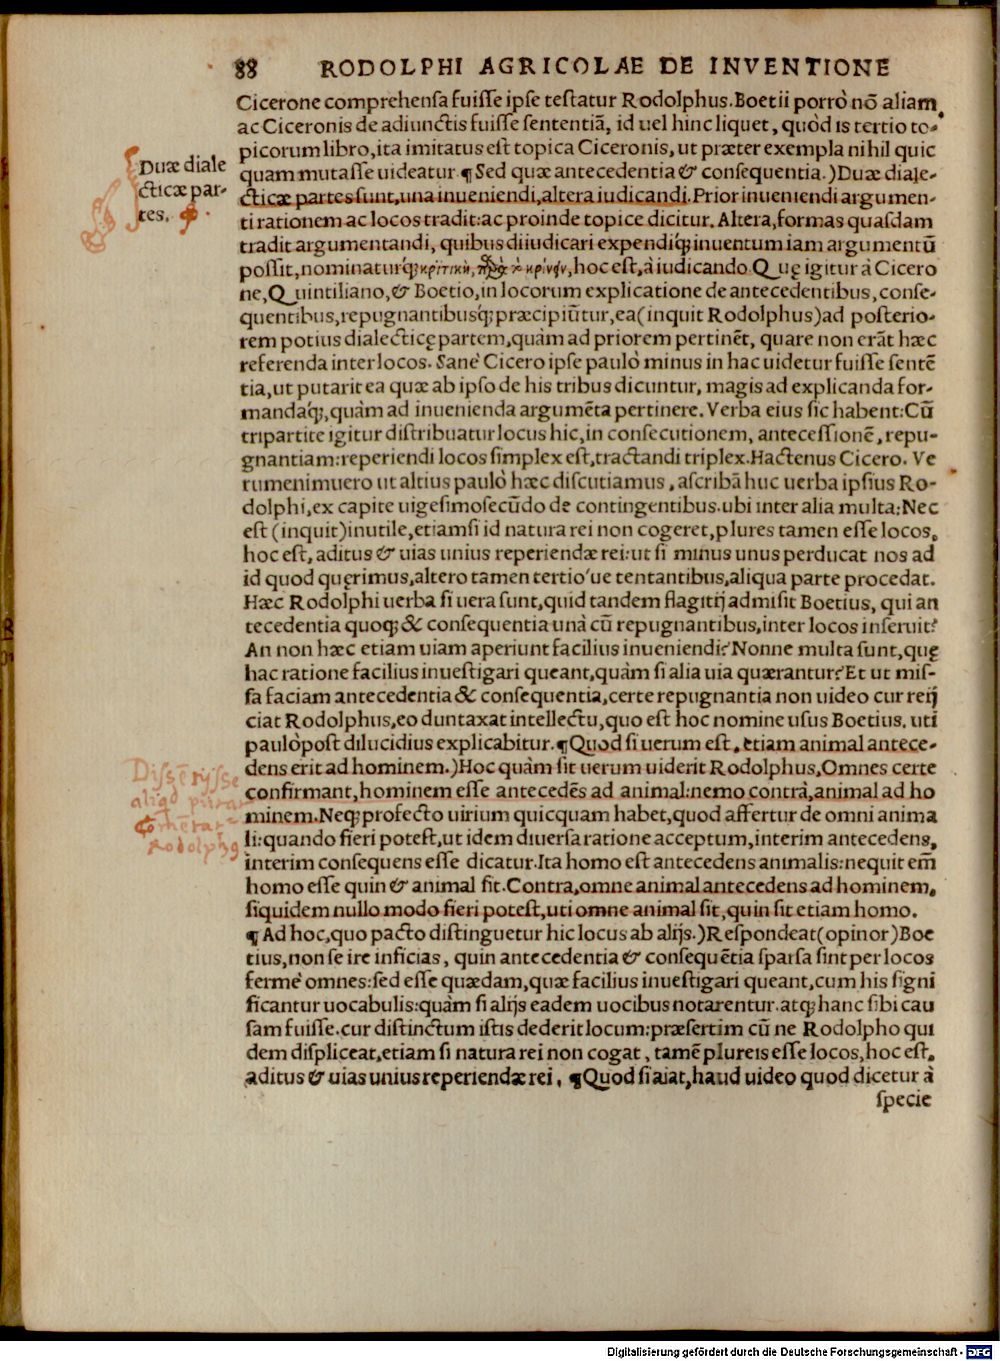 88 RODOLPHI AGRICOLAE DE INVENTIONE
Cicerone comprehensa fuisse ipse testatur Rodolphus. Boetii porrò nō aliam
ac Ciceronis de adiunctis fuisse sententiā, id uel hinc liquet, quòd is tertio to-
picorum libro, ita imitatus est topica Ciceronis, ut præter exempla nihil quic
quam mutasse uideatur ¶ Sed quæ antecedentia & consequentia.) Duæ diale-
Duæ diale
cticæ par-
tes.
cticæ partes sunt, una inueniendi, altera iudicandi. Prior inueniendi argumen-
ti rationem ac locos tradit: ac proinde topice dicitur. Altera, formas quasdam
tradit argumentandi, quibus diiudicari expendiq; inuentum iam argumentū
possit, nominaturq́; κριτικὴ, κρίνειν, hoc est, à iudicando. Quę igitur à Cicero
ne, Quintiliano, & Boetio, in locorum explicatione de antecedentibus, conse-
quentibus, repugnantibusq́; præcipiūtur, ea (inquit Rodolphus) ad posterio-
rem potius dialecticę partem, quàm ad priorem pertinēt, quare non erāt hæc
referenda inter locos. Sanè Cicero ipse paulò minus in hac uidetur fuisse sentē
tia, ut putarit ea quæ ab ipso de his tribus dicuntur, magis ad explicanda for-
mandaq́;, quàm ad inuenienda argumēta pertinere. Verba eius sic habent: Cū
tripartite igitur distribuatur locus hic, in consecutionem, antecessionē, repu-
gnantiam: reperiendi locos simplex est, tractandi triplex. Hactenus Cicero. Ve
rumenimuero ut altius paulò hæc discutiamus, ascribā huc uerba ipsius Ro-
dolphi, ex capite uigesimosecūdo de contingentibus. ubi inter alia multa: Nec
est (inquit) inutile, etiamsi id natura rei non cogeret, plures tamen esse locos,
hoc est, aditus & uias unius reperiendæ rei: ut si minus unus perducat nos ad
id quod quęrimus, altero tamen tertio'ue tentantibus, aliqua parte procedat.
Hæc Rodolphi uerba si uera sunt, quid tandem flagitij admisit Boetius, qui an
tecedentia quoq; & consequentia unà cū repugnantibus, inter locos inseruit?
An non hæc etiam uiam aperiunt facilius inueniendi? Nonne multa sunt, quę
hac ratione facilius inuestigari queant, quàm si alia uia quærantur? Et ut mis-
sa faciam antecedentia & consequentia, certe repugnantia non uideo cur reij
ciat Rodolphus, eo duntaxat intellectu, quo est hoc nomine usus Boetius, uti
paulòpost dilucidius explicabitur. ¶ Quod si uerum est, etiam animal antece-
dens erit ad hominem.) Hoc quàm sit uerum uiderit Rodolphus, Omnes certe
confirmant, hominem esse antecedēs ad animal: nemo contrà, animal ad ho
minem. Neq; profecto uirium quicquam habet, quod affertur de omni anima
li: quando fieri potest, ut idem diuersa ratione acceptum, interim antecedens,
interim consequens esse dicatur. Ita homo est antecedens animalis: nequit em̄
homo esse quin & animal sit. Contra, omne animal antecedens ad hominem,
siquidem nullo modo fieri potest, uti omne animal sit, quin sit etiam homo.
¶ Ad hoc, quo pacto distinguetur hic locus ab alijs.) Respondeat (opinor) Boe
tius, non se ire inficias, quin antecedentia & consequētia sparsa sint per locos
fermè omnes: sed esse quædam, quæ facilius inuestigari queant, cum his signi
ficantur uocabulis: quàm si alijs eadem uocibus notarentur. atq; hanc sibi cau
sam fuisse. cur distinctum istis dederit locum: præsertim cū ne Rodolpho qui
dem displiceat, etiam si natura rei non cogat, tamē plureis esse locos, hoc est,
aditus & uias unius reperiendæ rei. ¶ Quod si aiat, haud uideo quod dicetur à
specie
Digitalisierung gefördert durch die Deutsche Forschungsgemeinschaft - DFG